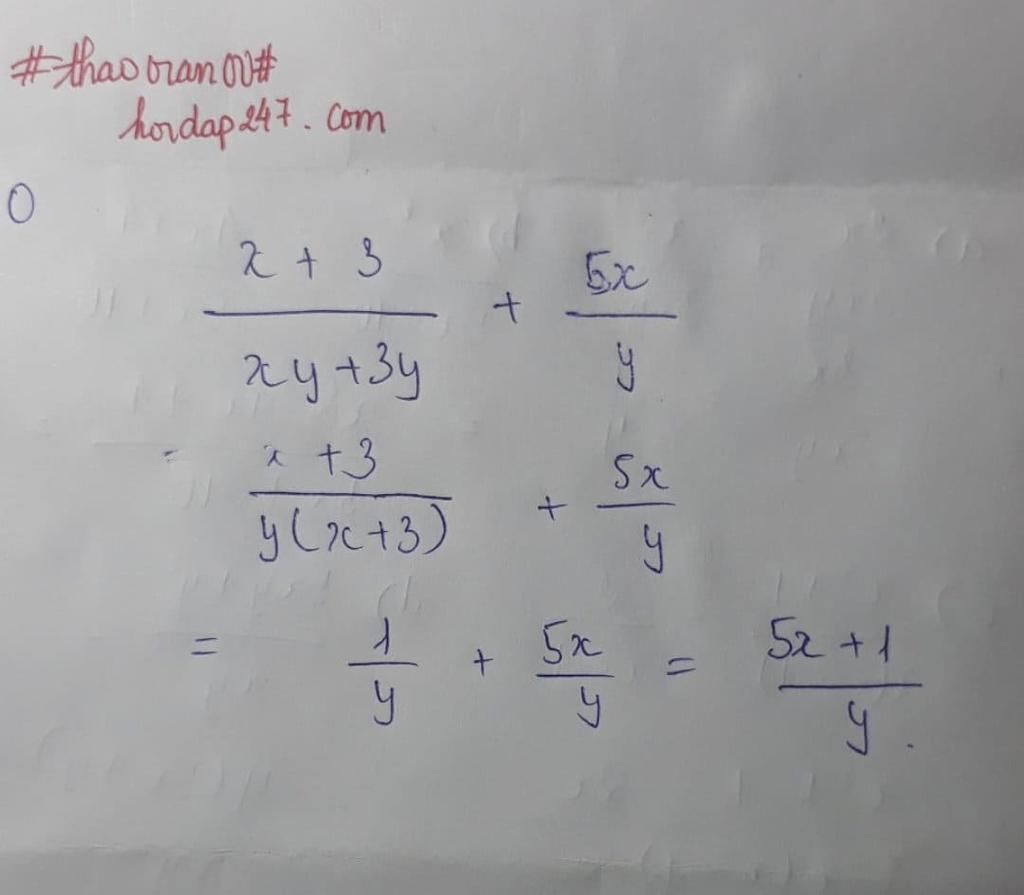 #thaotran00#
hoidap247.com
0
x + 3 / xy + 3y + 5x / y
= x + 3 / y(x + 3) + 5x / y
= 1 / y + 5x / y = 5x + 1 / y .